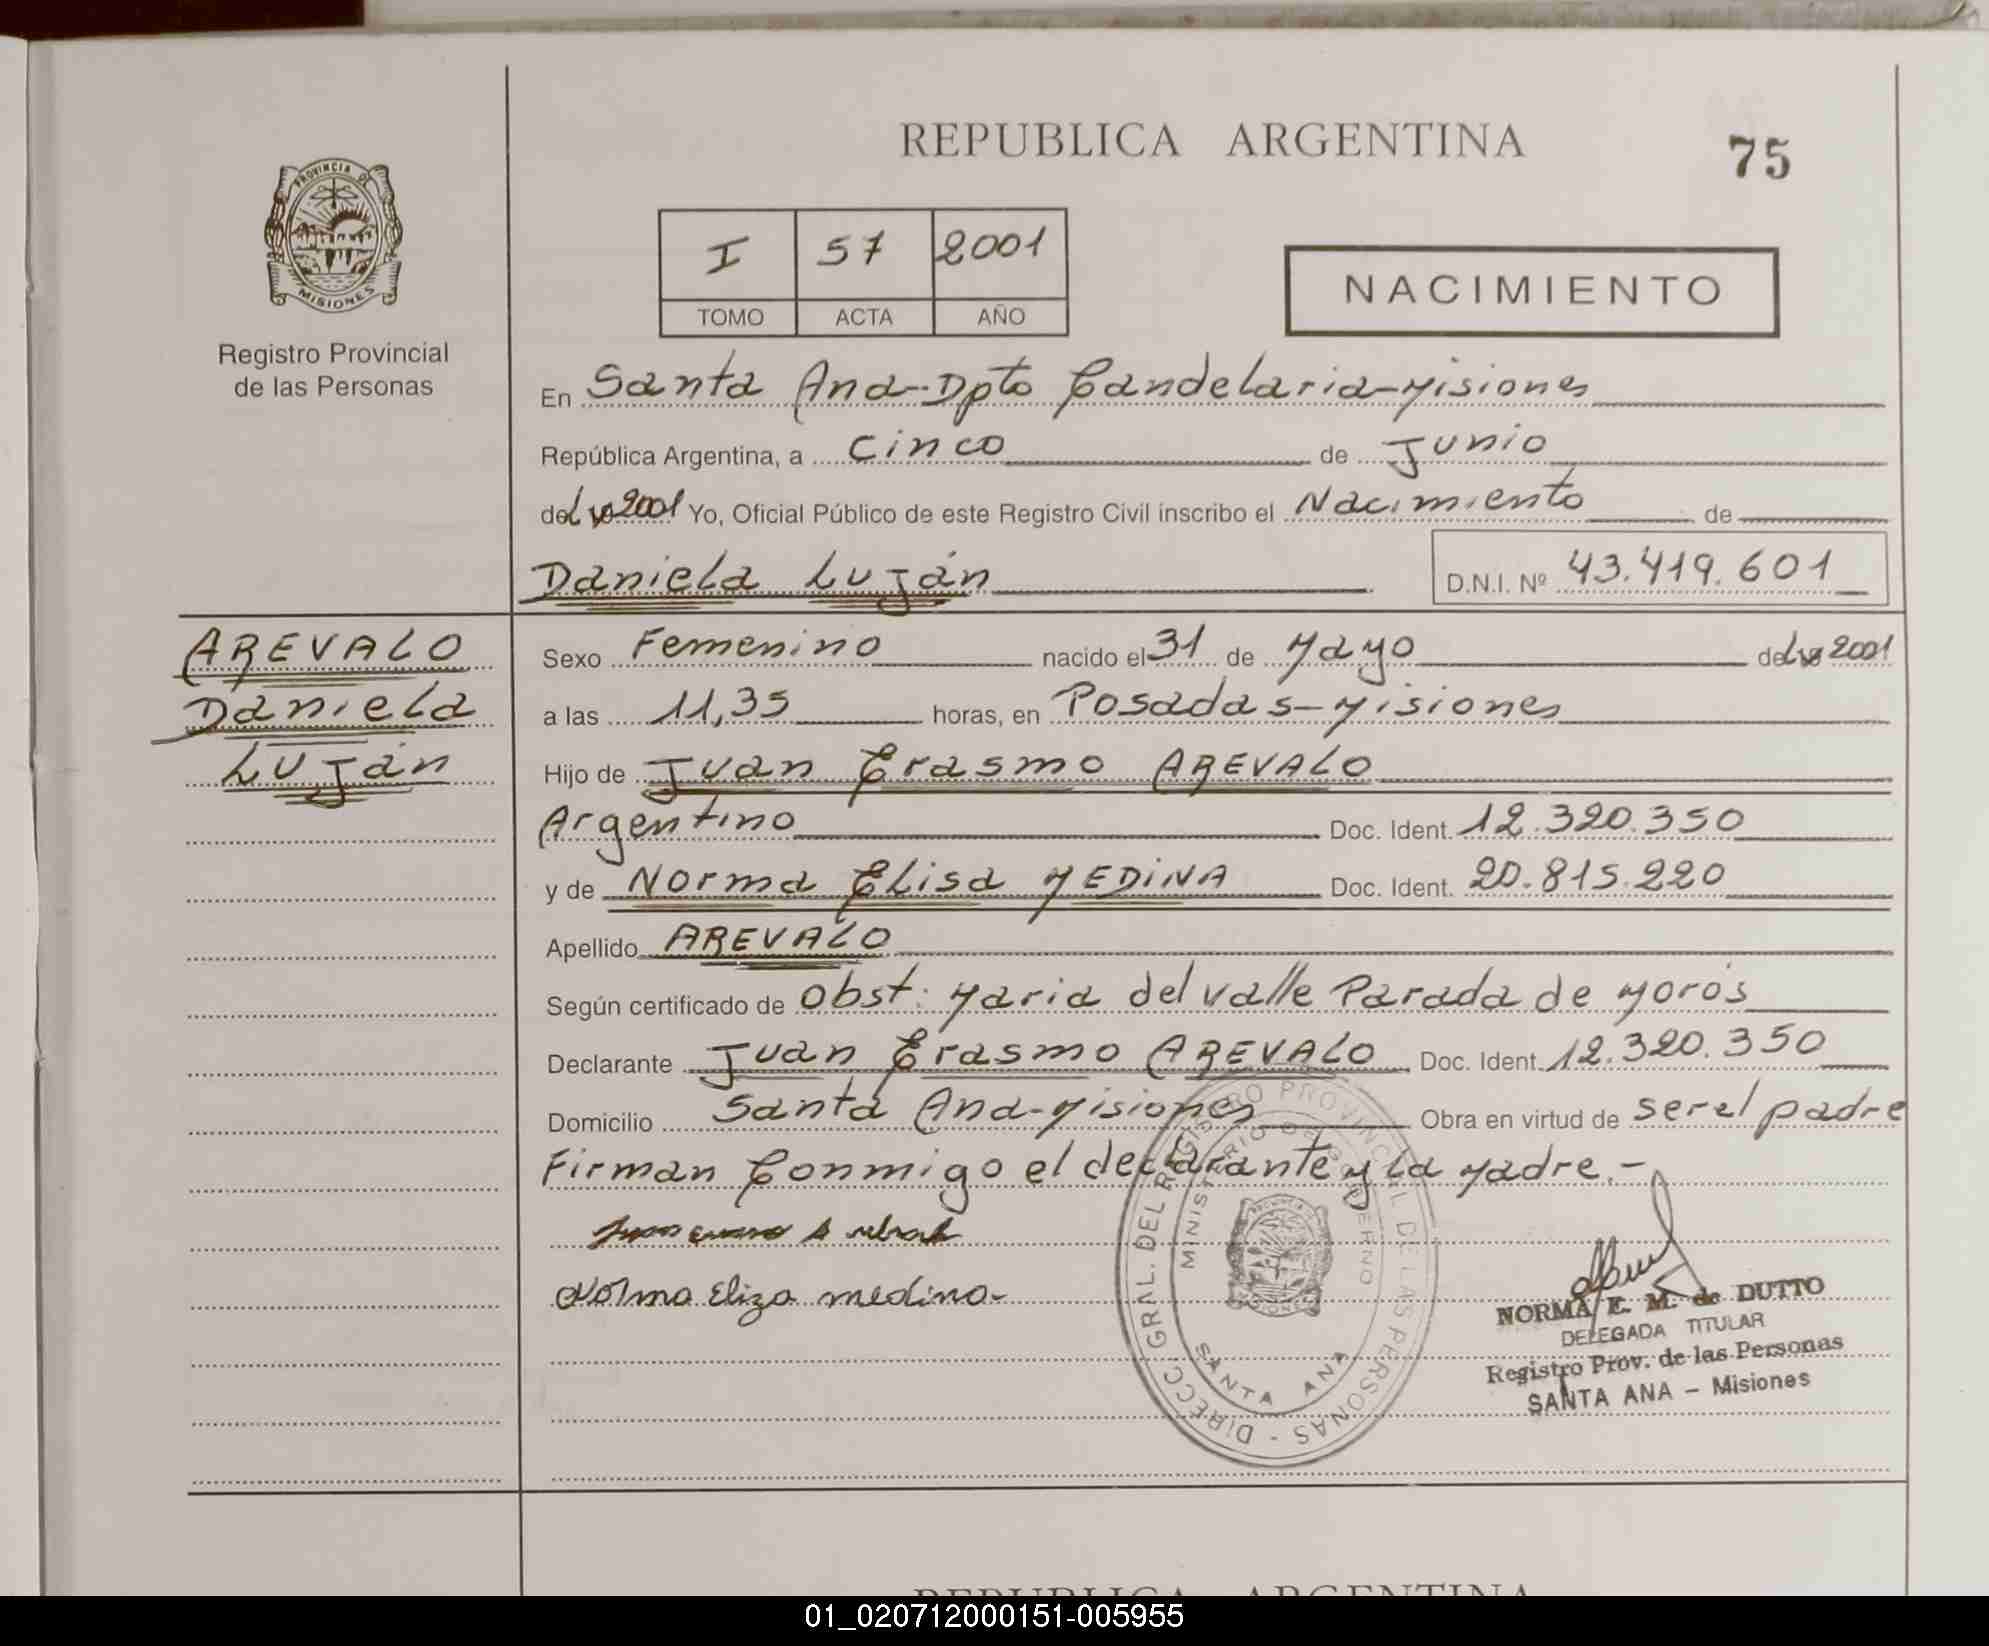 REPUBLICA ARGENTINA
75
PROVINCIA DE
MISIONES
Registro Provincial
de las Personas
I 57 2001
TOMO ACTA AÑO
NACIMIENTO
En Santa Ana-Dpto Candelaria-Misiones
República Argentina, a Cinco de Junio
del 2001 Yo, Oficial Público de este Registro Civil inscribo el Nacimiento de
Daniela Luján
D.N.I. Nº 43.419.601
AREVALO
Daniela
Luján
Sexo Femenino nacido el 31 de Mayo del 2001
a las 11,35 horas, en Posadas-Misiones
Hijo de Juan Erasmo AREVALO
Argentino Doc. Ident. 12.320.350
y de Norma Elisa MEDINA Doc. Ident. 20.815.220
Apellido AREVALO
Según certificado de Obst: Maria del valle Parada de Morós
Declarante Juan Erasmo AREVALO Doc. Ident. 12.320.350
Domicilio Santa Ana-Misiones Obra en virtud de ser el padre
Firman Conmigo el declarante y la Madre.-
Norma Eliza medina-
DIRECC GRAL. DEL REGISTRO PROVINCIAL DE LAS PERSONAS -
MINISTERIO DE GOBIERNO
SANTA ANA
NORMA E. M. de DUTTO
DELEGADA TITULAR
Registro Prov. de las Personas
SANTA ANA - Misiones
REPUBLICA ARGENTINA
01_020712000151-005955